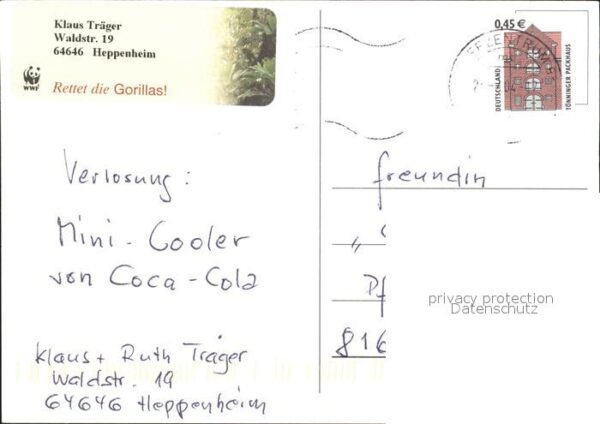 Klaus Träger
Waldstr. 19
64646 Heppenheim
WWF
Rettet die Gorillas!
0,45 €
DEUTSCHLAND
TÖNNINGER PACKHAUS
Verlosung:
Mini-Cooler
von Coca-Cola
Klaus + Ruth Träger
Waldstr. 19
64646 Heppenheim
freundin
"
Pf
816
privacy protection
Datenschutz